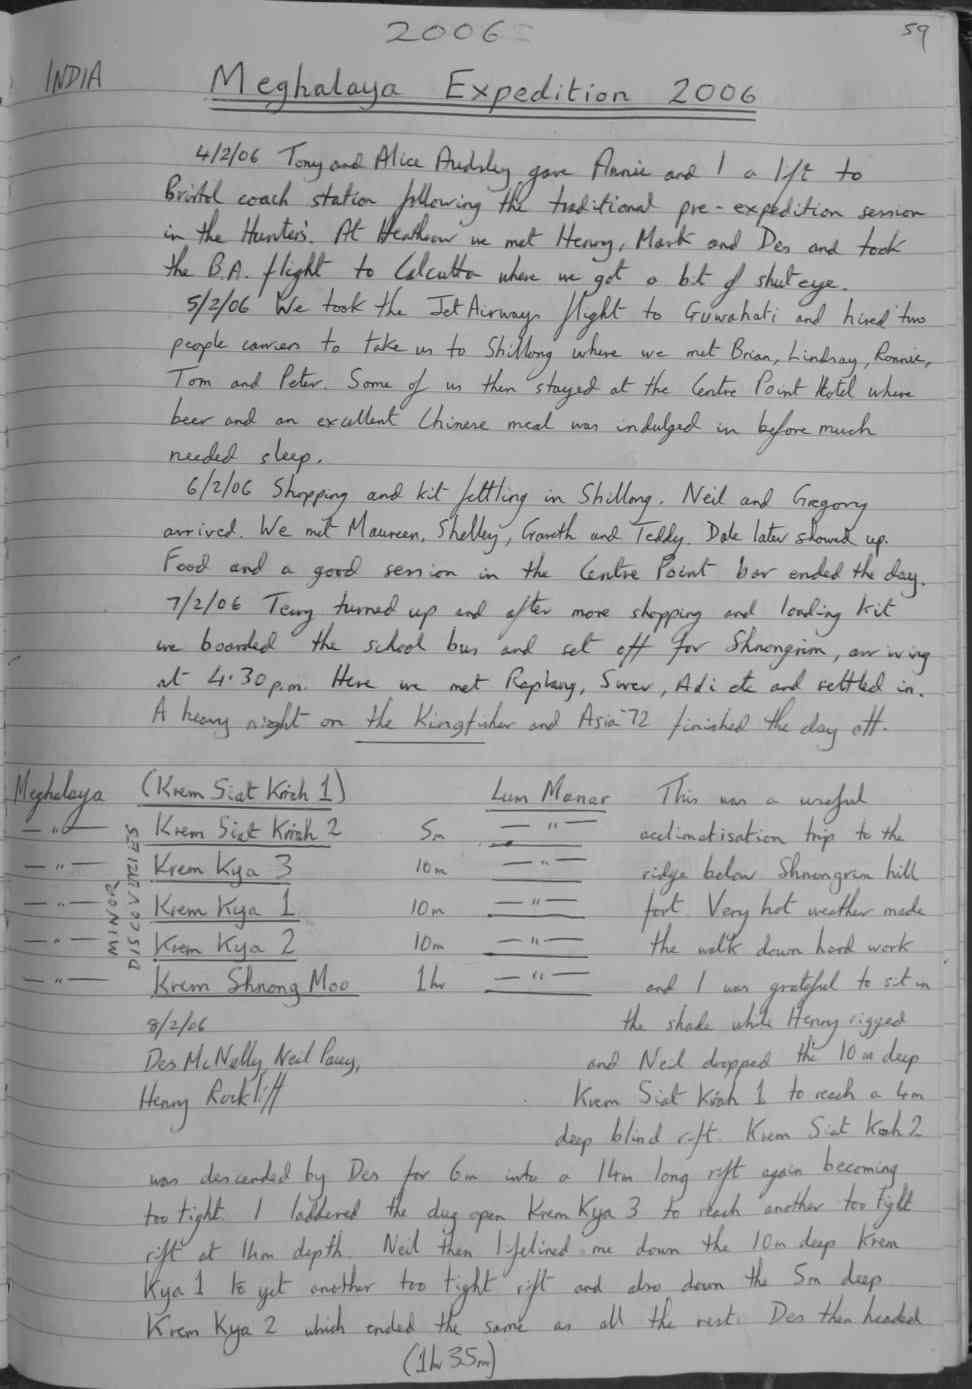 2006
59
INDIA
Meghalaya Expedition 2006
4/2/06 Tony and Alice Audsley gave Annie and I a lift to
Bristol coach station following the traditional pre-expedition session
in the Hunters'. At Heathrow we met Henry, Mark and Des and took
the B.A. flight to Calcutta where we got a bit of shut eye.
5/2/06 We took the Jet Airways flight to Guwahati and hired two
people carriers to take us to Shillong where we met Brian, Lindsay, Ronnie,
Tom and Peter. Some of us then stayed at the Centre Point Hotel where
beer and an excellent Chinese meal was indulged in before much
needed sleep.
6/2/06 Shopping and kit fettling in Shillong. Neil and Gregory
arrived. We met Maureen, Shelley, Gareth and Teddy. Dale later showed up.
Food and a good session in the Centre Point bar ended the day.
7/2/06 Terry turned up and after more shopping and loading kit
we boarded the school bus and set off for Shnongrim, arriving
at 4.30 p.m. Here we met Raplang, Swer, Adi etc and settled in.
A heavy night on the Kingfisher and Asia 72 finished the day off.
Meghalaya (Krem Siat Krich 1) Lum Manar This was a useful
— " — Krem Siat Kroh 2 5m — " — acclimatisation trip to the
— " — Krem Kya 3 10m — " — ridge below Shnongrim hill
— " — Krem Kya 1 10m — " — fort. Very hot weather made
— " — Krem Kya 2 10m — " — the walk down hard work
— " — Krem Shnong Moo 1hr — " — and I was grateful to sit in
MINOR
DISCOVERIES
8/2/06 the shade while Henry rigged
Des McNally, Neil Pacey, and Neil dropped the 10m deep
Henry Rockliff Krem Siat Kroh 1 to reach a 4m
deep blind rift. Krem Siat Kroh 2
was descended by Des for 6m into a 14m long rift again becoming
too tight. I laddered the dug open Krem Kya 3 to reach another too tight
rift at 14m depth. Neil then lifelined me down the 10m deep Krem
Kya 1 to yet another too tight rift and also down the 5m deep
Krem Kya 2 which ended the same as all the rest. Des then headed
(1hr 35m)